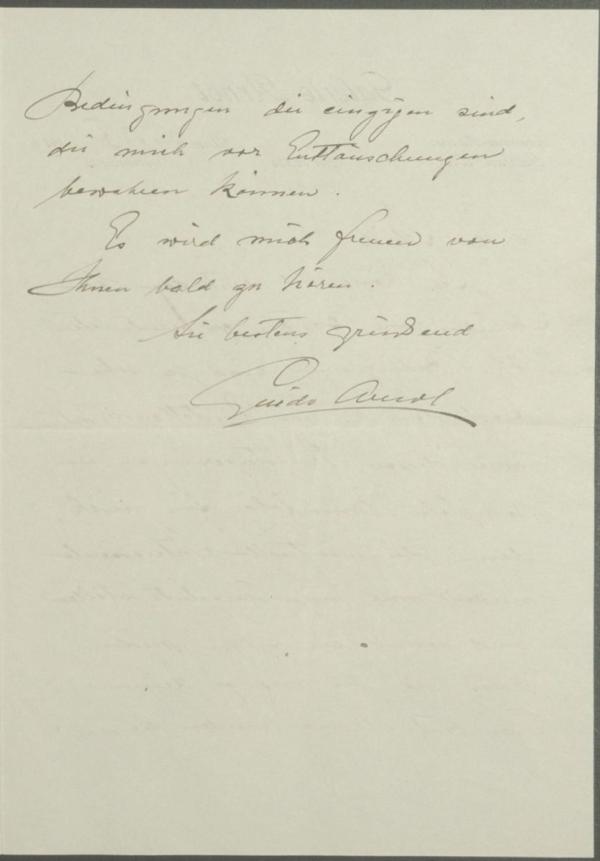 Bedingungen die einzigen sind,
die mich vor Enttäuschungen
bewahren können.
Es wird mich freuen von
Ihnen bald zu hören.
Sie bestens grüßend
Guido